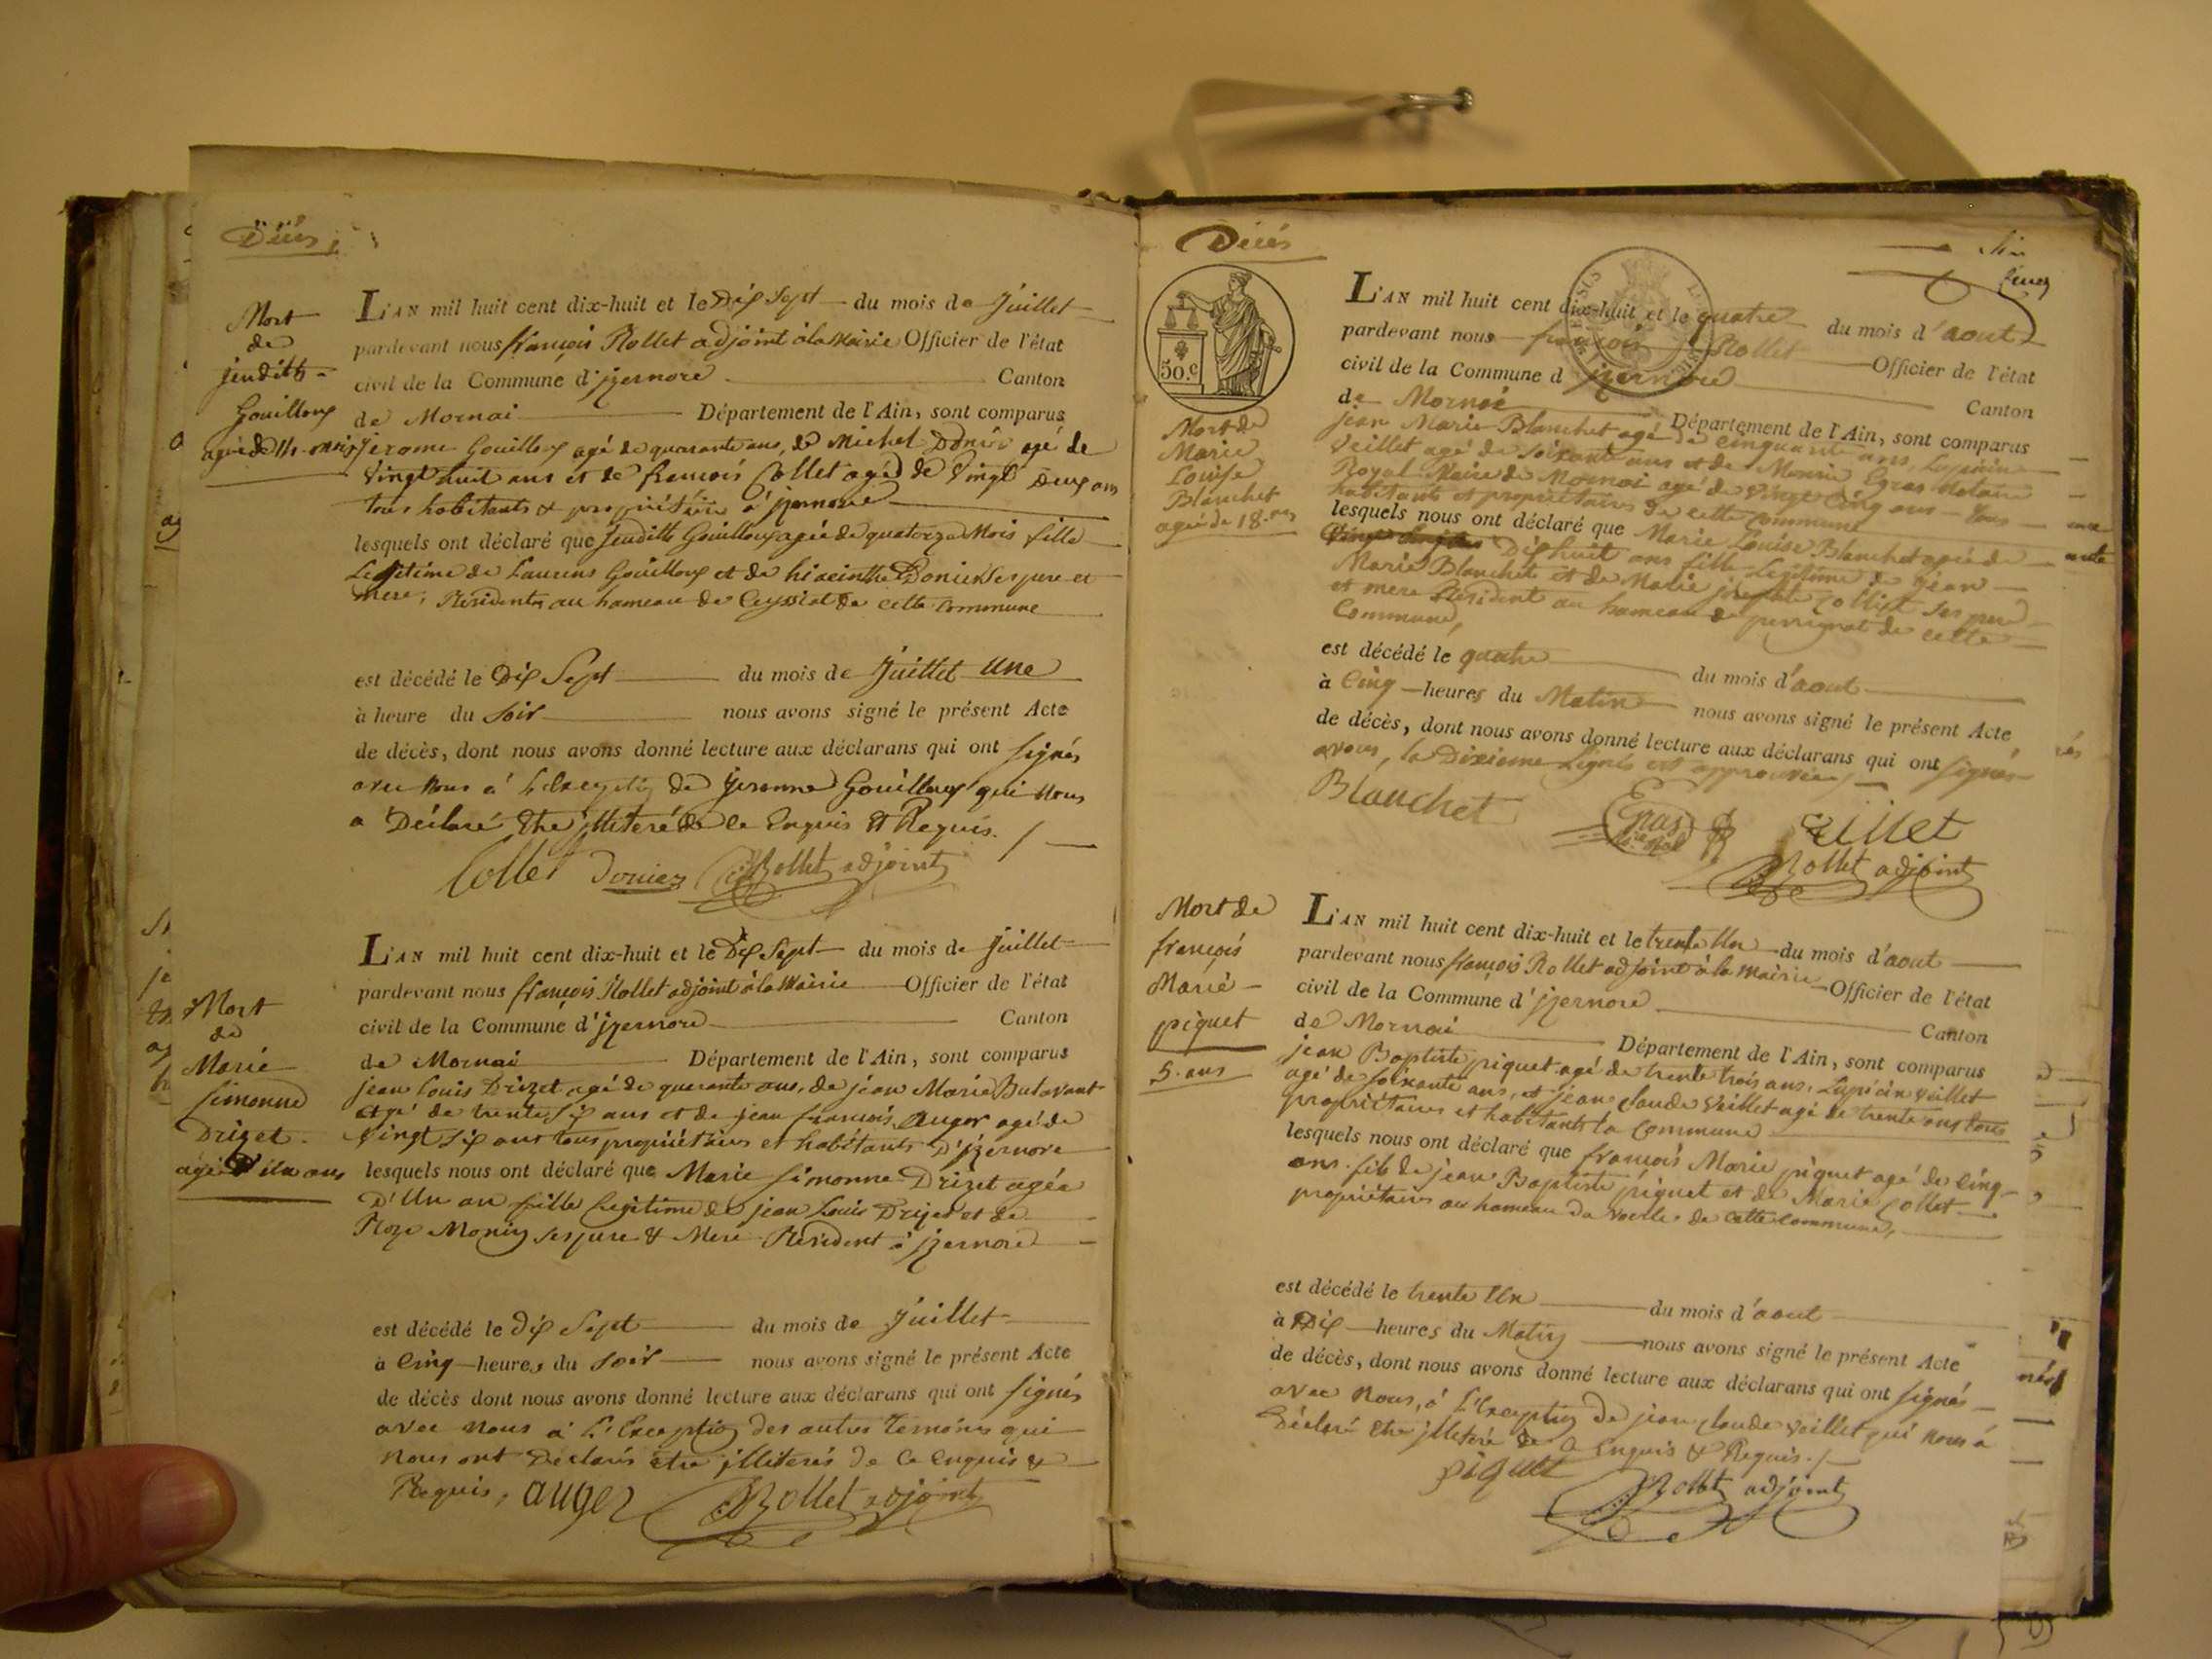 Décés
Mort
de
judith
Gouilloux
agée de 14 mois
L'AN mil huit cent dix-huit et le Dix Sept du mois de Juillet
pardevant nous françois Rollet adjoint à la Mairie Officier de l'état
civil de la Commune d'jzernore Canton
de Mornai Département de l'Ain, sont comparus
jerome Gouilloux agé de quarante ans, de Michel Donier agé de
Vingt huit ans et de françois Collet agéd de Vingt Deux ans
tous habitants & propriétaire à jzernore
lesquels ont déclaré que Judith Gouilloux agée de quatorze Mois fille
Legitime de Laurens Gouilloux et de hiacinthe Donier Ses pere et
mere, Residents au hameau de Ceyssiat de cette Commune
est décédé le Dix Sept du mois de Juillet une
à heure du Soir nous avons signé le présent Acte
de décès, dont nous avons donné lecture aux déclarans qui ont Signés
avec Nous à L'Exception de jerome Gouilloux qui Nous
a Déclaré Etre jlliteré de ce Enquis & Requis. /
Collet Donier Rollet adjoint
Mort
de
Marie
Simonne
Drizet
agée d'un ans
L'AN mil huit cent dix-huit et le Dix Sept du mois de Juillet
pardevant nous françois Rollet adjoint à la Mairie Officier de l'état
civil de la Commune d'jzernore Canton
de Mornai Département de l'Ain, sont comparus
jean Louis Drizet agé de quarante ans, de jean Marie Butavant
agé de trente Six ans et de jean françois Auger agé de
Vingt Six ans tous propriétaires et habitants D'jzernore
lesquels nous ont déclaré que Marie Simonne Drizet agée
D'Un an fille Legitime de jean Louis Drizet et de
Roze Monin ses pere & Mere Résident à jzernore
est décédé le dix Sept du mois de Juillet
à Cinq heures du Soir nous avons signé le présent Acte
de décès dont nous avons donné lecture aux déclarans qui ont Signés
avec Nous à L'Exception des autres temoins qui
Nous ont Déclarés etre jlliterés de Ce Enquis &
Requis, auger Rollet adjoint
Décés
50.c
Mort de
Marie
Louise
Blanchet
agée de 18 ans
L'AN mil huit cent dix-huit et le quatre du mois d'aout
pardevant nous françois Rollet Officier de l'état
civil de la Commune d jzernore Canton
de Mornai Département de l'Ain, sont comparus
jean Marie Blanchet agé de cinquante ans, Lupicin
Veillet agé de Soixante ans et de Monsr Egraz Notaire
Royal Maire de Mornai agé de Vingt Cinq ans Tous
habitants et propriétaires de cette Commune
lesquels nous ont déclaré que Marie Louise Blanchet agée de
Dix huit ans fille Legitime de jean
Marie Blanchet et de Marie josephte Collet Ses pere
et mere Resident au hameau de perrignat de cette
Commune,
est décédé le quatre du mois d'aout
à Cinq heures du Matin nous avons signé le présent Acte
de décès, dont nous avons donné lecture aux déclarans qui ont Signés
avec nous, la Dixieme Ligne est approuvée /
Blanchet Egraz Veillet
Rollet adjoint
Mort de
françois
Marie
piquet
5 ans
L'AN mil huit cent dix-huit et le trente Un du mois d'aout
pardevant nous françois Rollet adjoint à la Mairie Officier de l'état
civil de la Commune d'jzernore Canton
de Mornai Département de l'Ain, sont comparus
jean Baptiste piquet agé de trente trois ans, Lupicin Veillet
agé de Soixante ans, et jean Claude Veillet agé de trente ans tous
propriétaires et habitants la Commune
lesquels nous ont déclaré que françois Marie piquet agé de Cinq
ans fils de jean Baptiste piquet et de Marie Collet
propriétaires au hameau de Voerle de cette commune,
est décédé le trente Un du mois d'aout
à Dix heures du Matin nous avons signé le présent Acte
de décès, dont nous avons donné lecture aux déclarans qui ont Signés
avec Nous, à L'Exception de jean Claude Veillet qui Nous à
Déclaré Etre jlliteré de Ce Enquis & Requis. /
piquet
Rollet adjoint